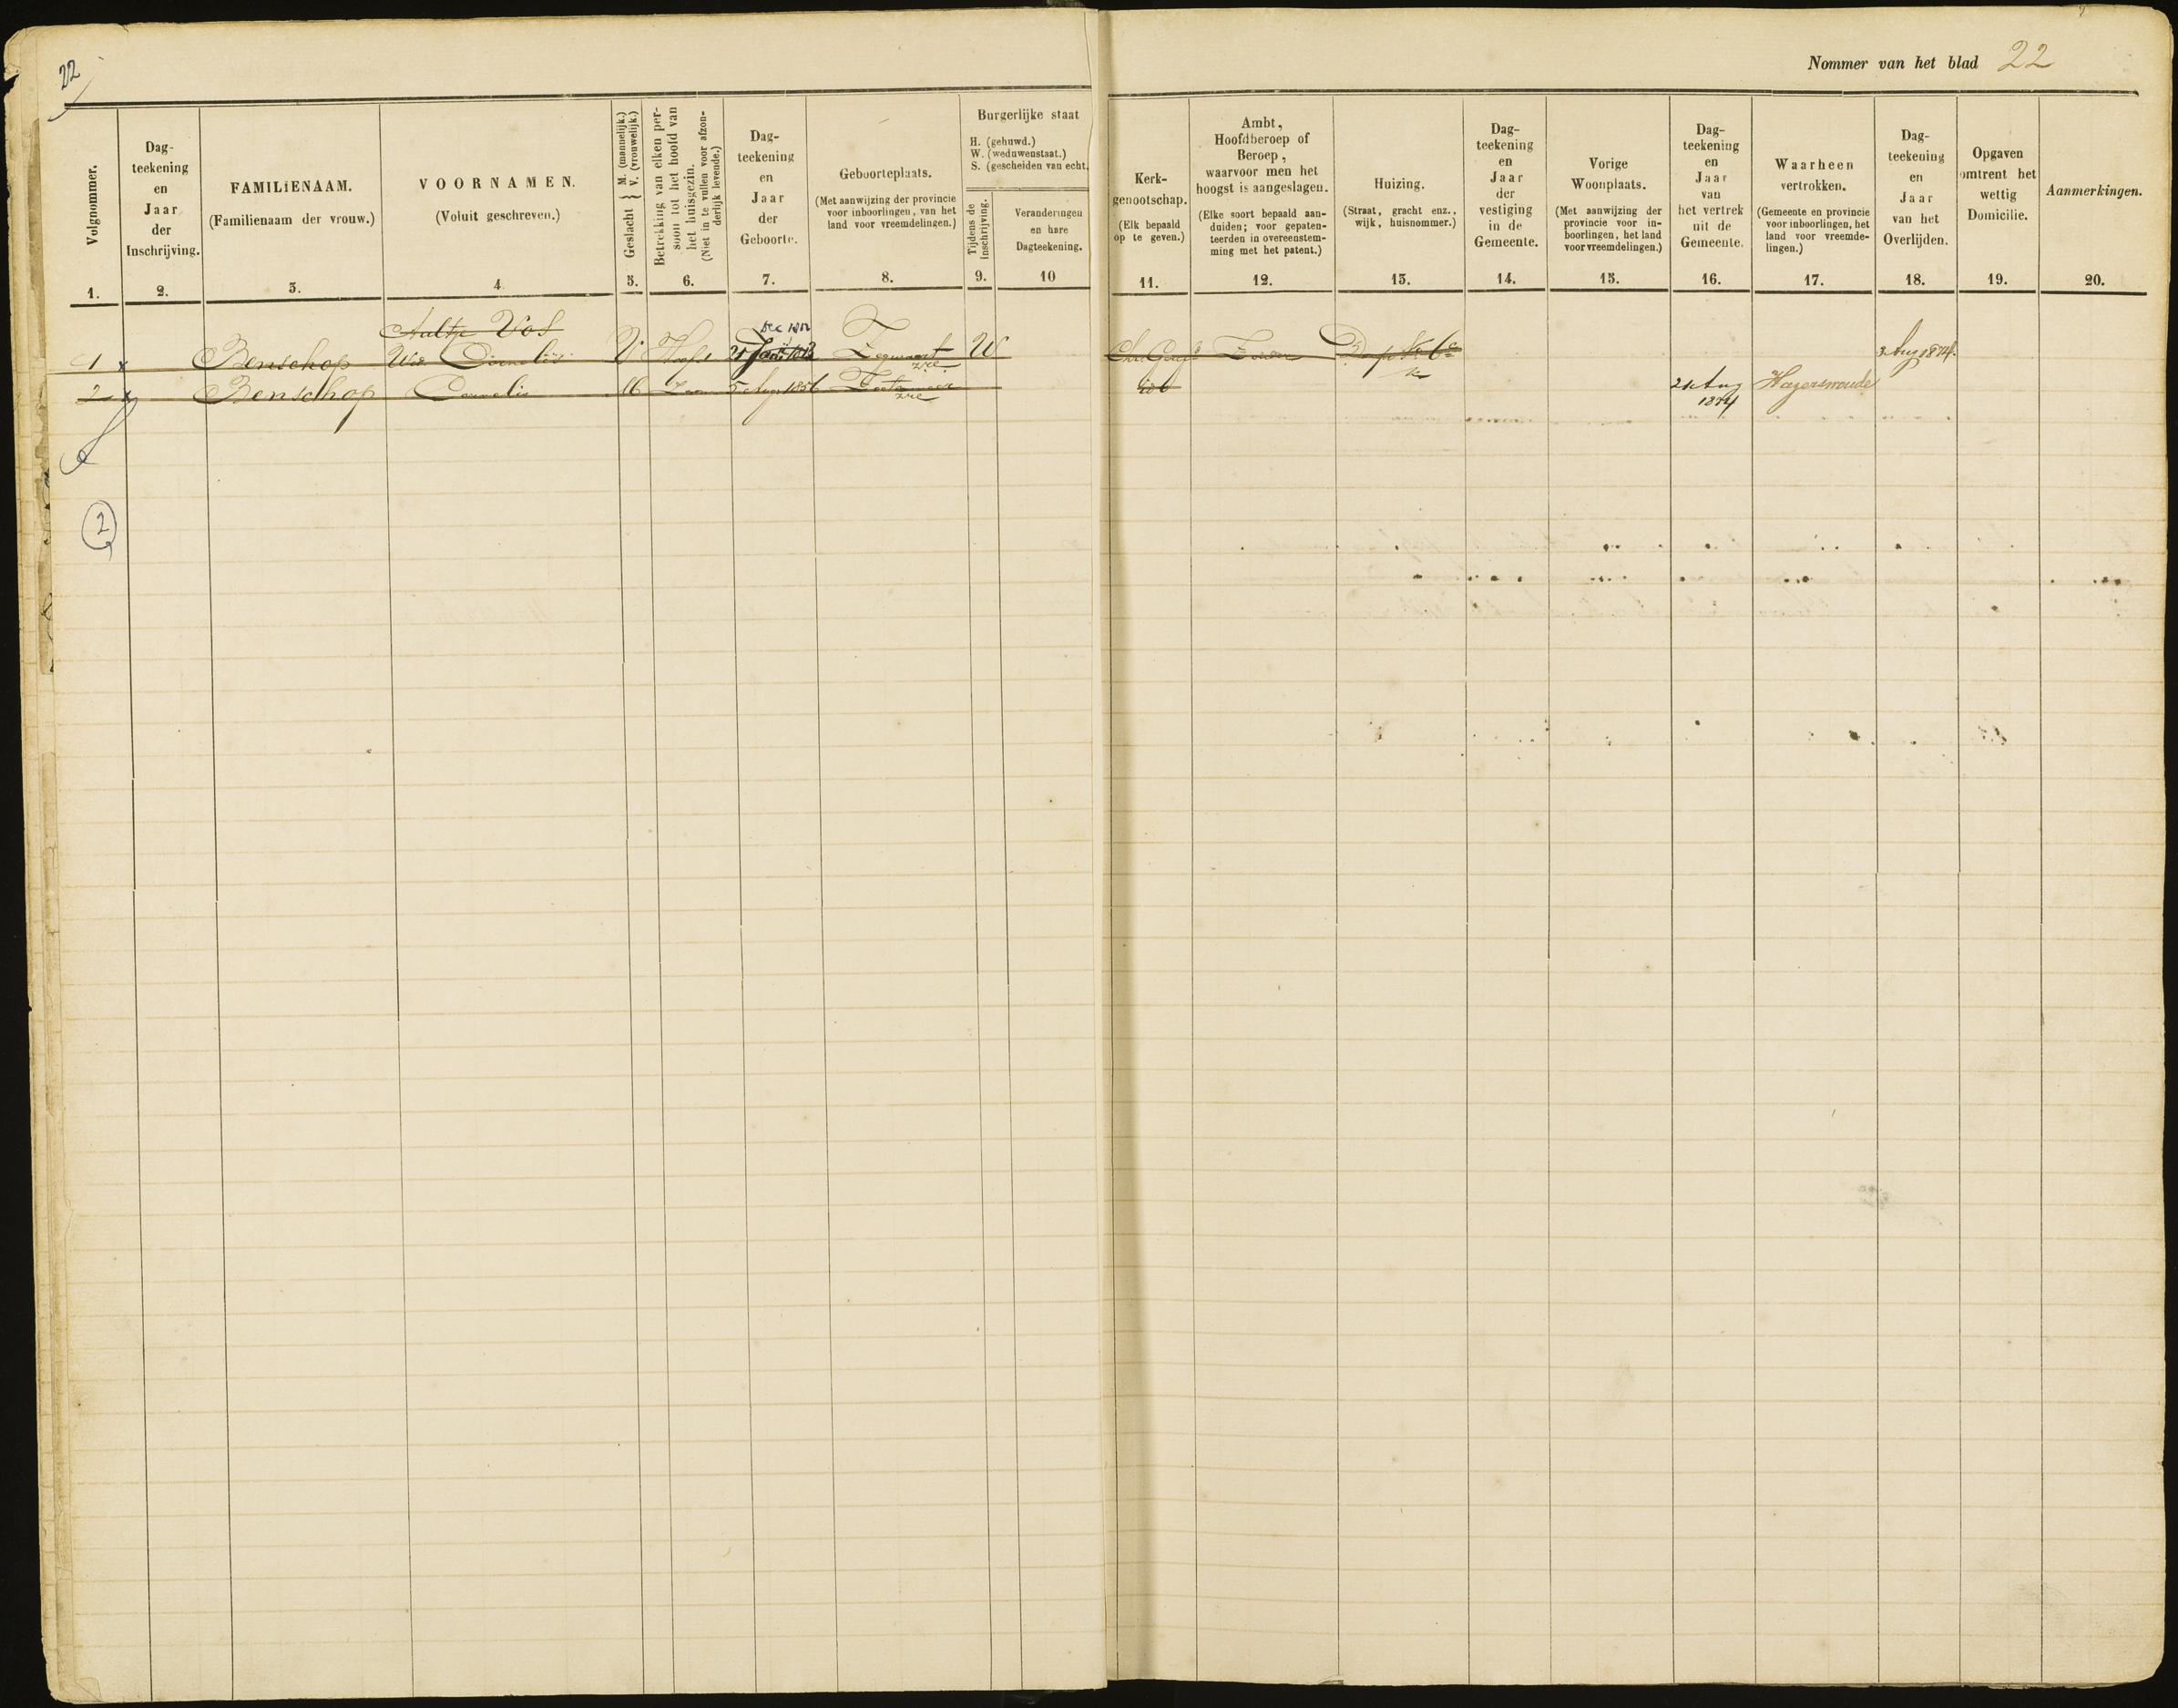 22
Nommer van het blad 22
Volgnommer.
1.
Dag-
teekening
en
Jaar
der
Inschrijving.
2.
FAMILIENAAM.
(Familienaam der vrouw.)
3.
VOORNAMEN.
(Voluit geschreven.)
4
Geslacht } M. (mannelijk.) V. (vrouwelijk.)
5.
Betrekking van elken per-
soon tot het hoofd van
het huisgezin.
(Niet in te vullen voor afzon-
derlijk levende.)
6.
Dag-
teekening
en
Jaar
der
Geboorte.
7.
Geboorteplaats.
(Met aanwijzing der provincie
voor inboorlingen, van het
land voor vreemdelingen.)
8.
Burgerlijke staat
H. (gehuwd.)
W. (weduwenstaat.)
S. (gescheiden van echt.
Tijdens de
inschrijving.
9.
Veranderingen
en hare
Dagteekening.
10
Kerk-
genootschap.
(Elk bepaald
op te geven.)
11.
Ambt,
Hoofdberoep of
Beroep,
waarvoor men het
hoogst is aangeslagen.
(Elke soort bepaald aan-
duiden; voor gepaten-
teerden in overeenstem-
ming met het patent.)
12.
Huizing.
(Straat, gracht enz.,
wijk, huisnommer.)
13.
Dag-
teekening
en
Jaar
der
vestiging
in de
Gemeente.
14.
Vorige
Woonplaats.
(Met aanwijzing der
provincie voor in-
boorlingen, het land
voor vreemdelingen.)
15.
Dag-
teekening
en
Jaar
van
het vertrek
uit de
Gemeente.
16.
Waarheen
vertrokken.
(Gemeente en provincie
voor inboorlingen, het
land voor vreemde-
lingen.)
17.
Dag-
teekening
en
Jaar
van het
Overlijden.
18.
Opgaven
omtrent het
wettig
Domicilie.
19.
Aanmerkingen.
20.
Aaltje Vos
Dec 1812
1 x Benschop Wed Cornelis V Hoofd 21 Zegwaart W 3 Aug 1874.
zHe
2 x Benschop Cornelis M Zoon 5 Aug 1856 Zoetermeer 21 Aug Hazerswoude
zHe 1874
2